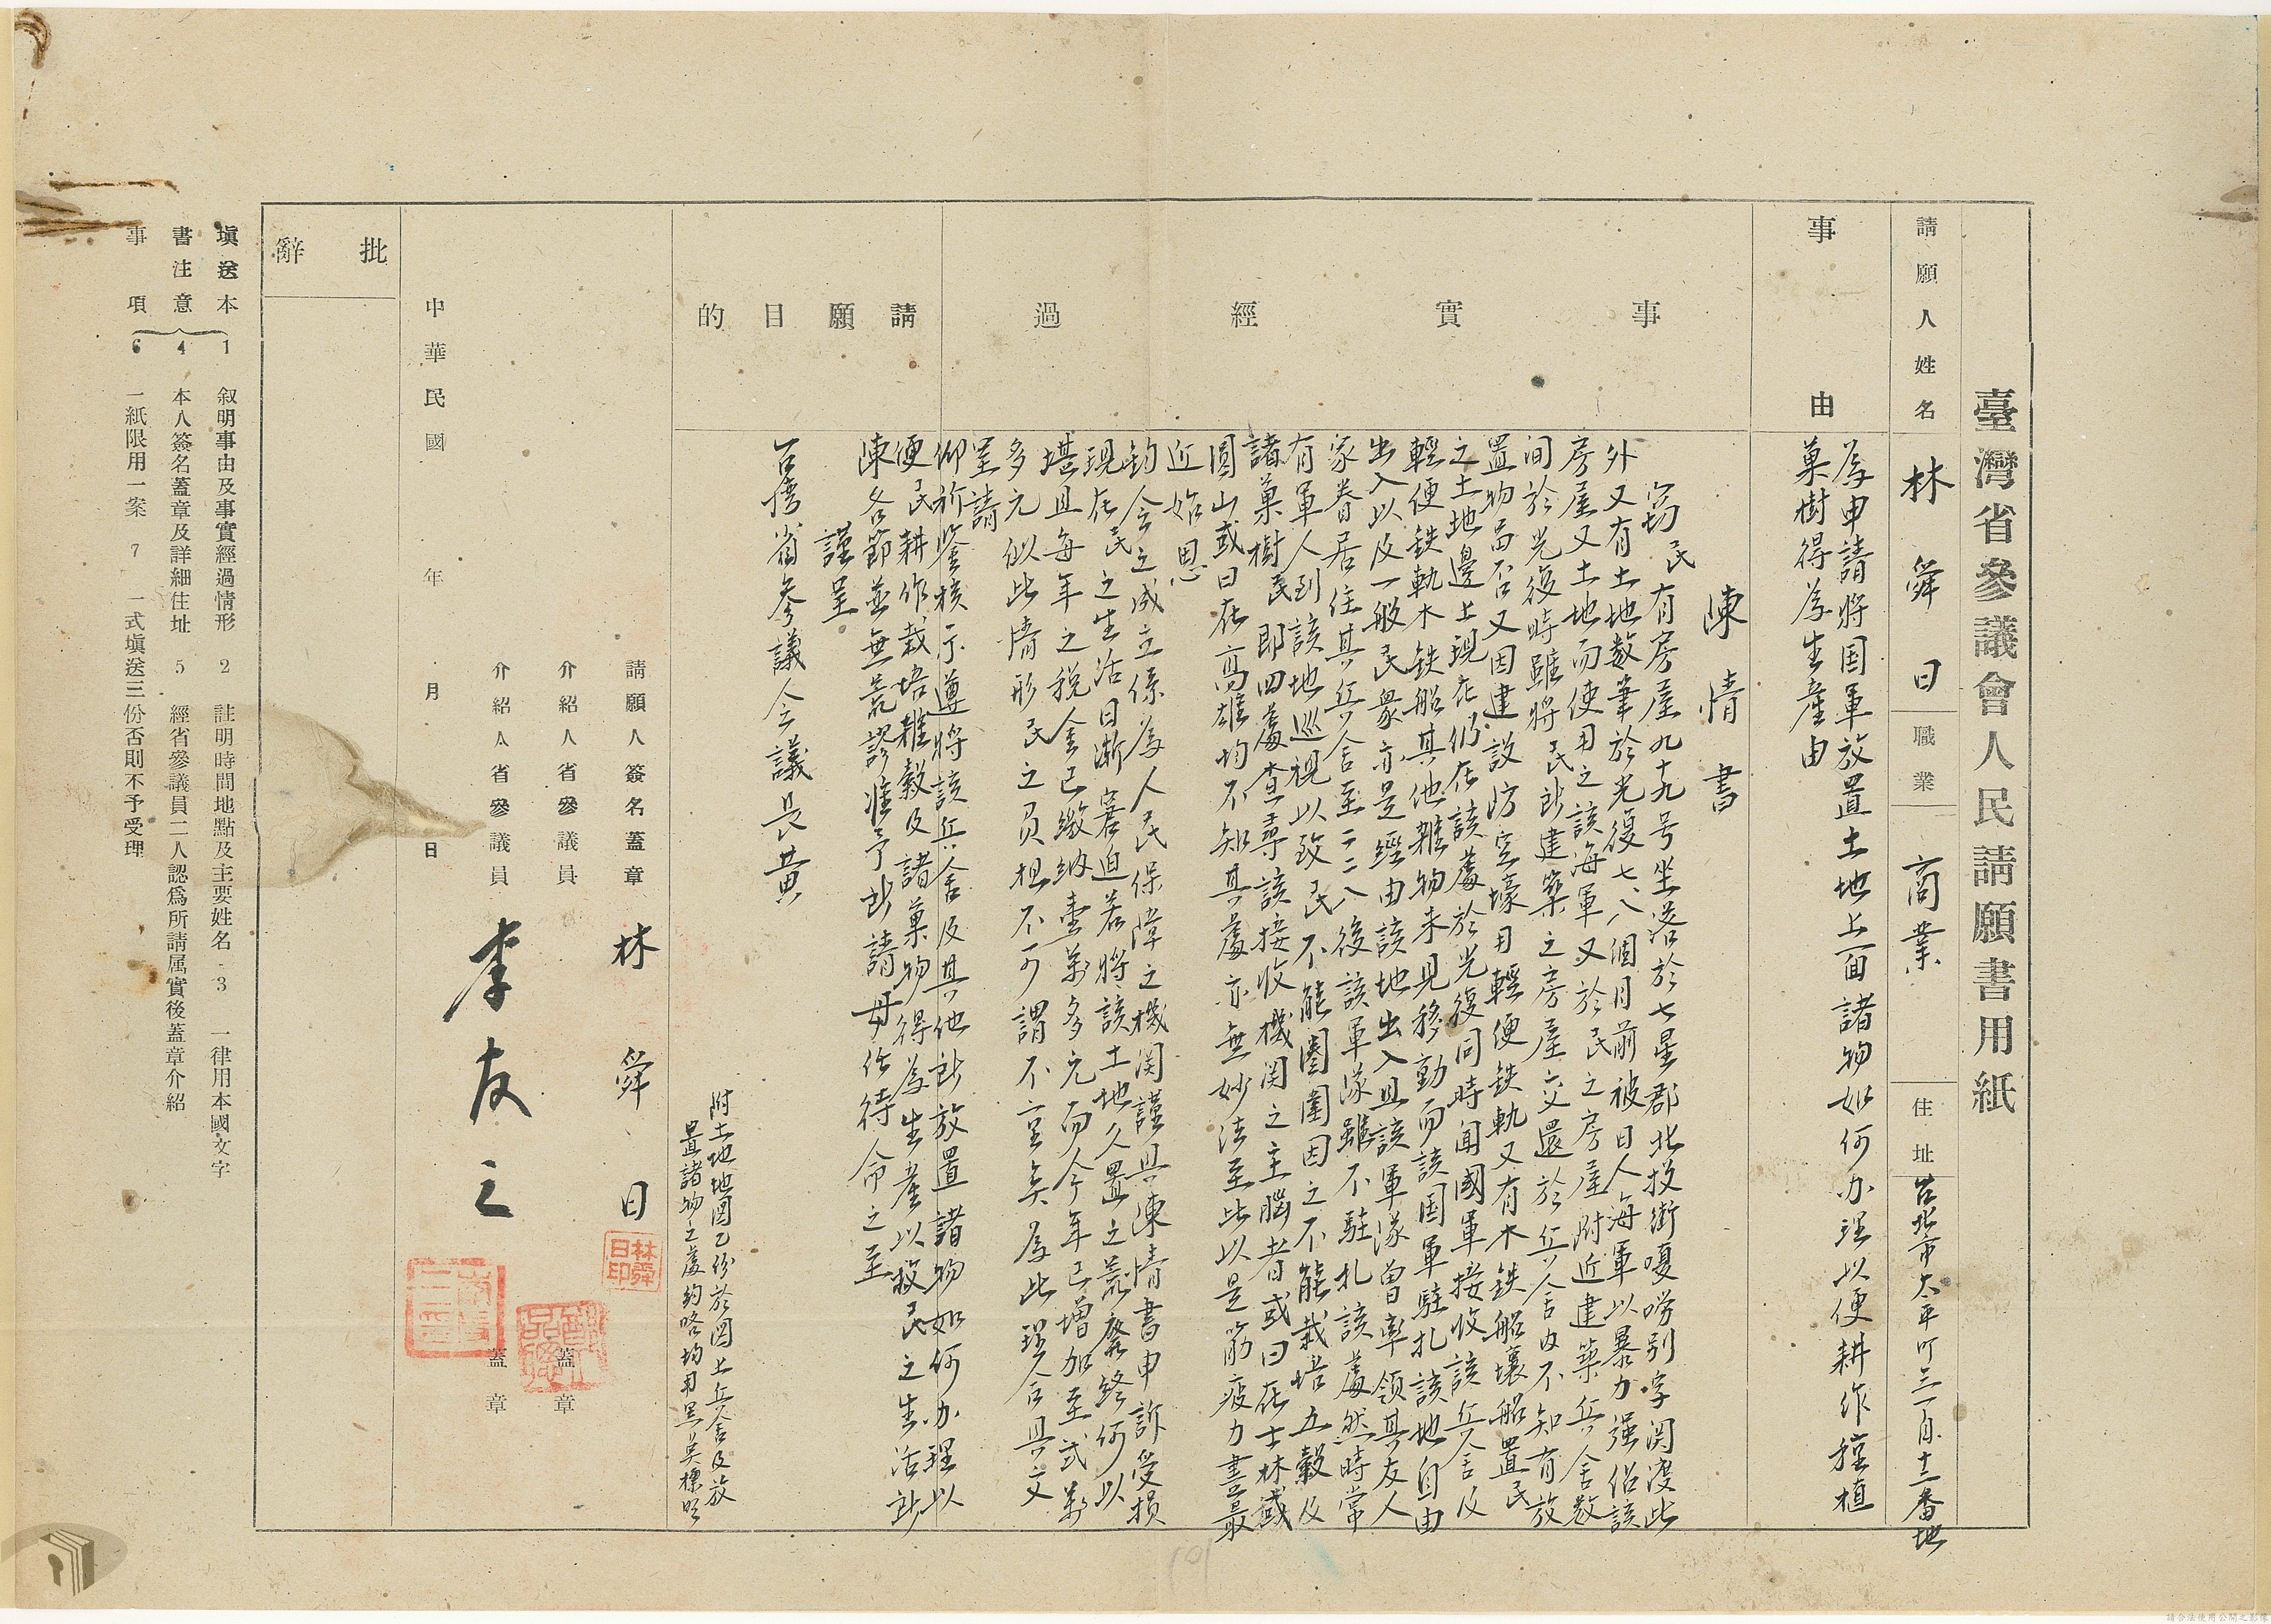 臺灣省參議會人民請願書用紙
請願人姓名 林舜日 職業 商業 住址 台北市太平町三丁目十三番地
事由 為申請將国軍放置土地上面諸物如何办理以便耕作種植
菓樹得為生產由
事實經過
陳情書
窃民有房屋九十九号坐落於七星郡北投街嗄嘮別字関渡此
外又有土地数筆於光復七、八個月前被日人海軍以暴力强佔該
房屋又土地而使用之該海軍又於民之房屋附近建築兵舍数
间於光復時雖將民所建築之房屋交還於兵舍内不知有放
置物品否又因建設防空壕用輕便鉄軌又有木鉄船壞船置民
之土地邊上現在仍在該處於光復同時聞國軍接收該兵舍及
輕便鉄軌木鉄船其他雜物未見移動而該国軍駐扎該地自由
出入以及一般民衆亦是經由該地出入且該軍隊曾率領其友人
家眷居住其兵舍至二二八後該軍隊雖不駐扎該處然時常
有軍人到該地巡視以致民不能圈圍因之不能栽培五穀及
諸菓樹民即四處查尋該接收機関之主腦者或曰在士林或
圓山或曰在高雄均不知其處亦無妙法至此以是筋疲力盡最
近始思
鈞会之成立係為人民保障之機関謹具陳情書申訴受損
現在民之生活日漸窘迫若將該土地久置之荒廢終何以
堪且每年之稅金已繳納壹萬多元而今年已增加至弍萬
多元似此情形民之負担不可謂不重矣為此理合具文
呈請
請願目的
仰祈鑒核示遵將該兵舍及其他所放置諸物如何办理以
便民耕作栽培雜穀及諸菓物得為生產以救民之生活所
陳各節並無荒謬准予所請毋任待命之至
謹呈
台湾省參議会議長黄
附土地地図乙份於図上兵舍及放
置諸物之處約略均用黑英標明
請願人簽名蓋章 林舜日
林舜日印
介紹人省參議員 蓋章
介紹人省參議員 李友三 蓋章
中華民國 年 月 日
批辭
填送本書注意事項
1 叙明事由及事實經過情形 2 註明時間地點及主要姓名 3 一律用本國文字
4 本人簽名蓋章及詳細住址 5 經省參議員二人認為所請属實後蓋章介紹
6 一紙限用一案 7 一式填送三份否則不予受理
請合法使用公開之影像